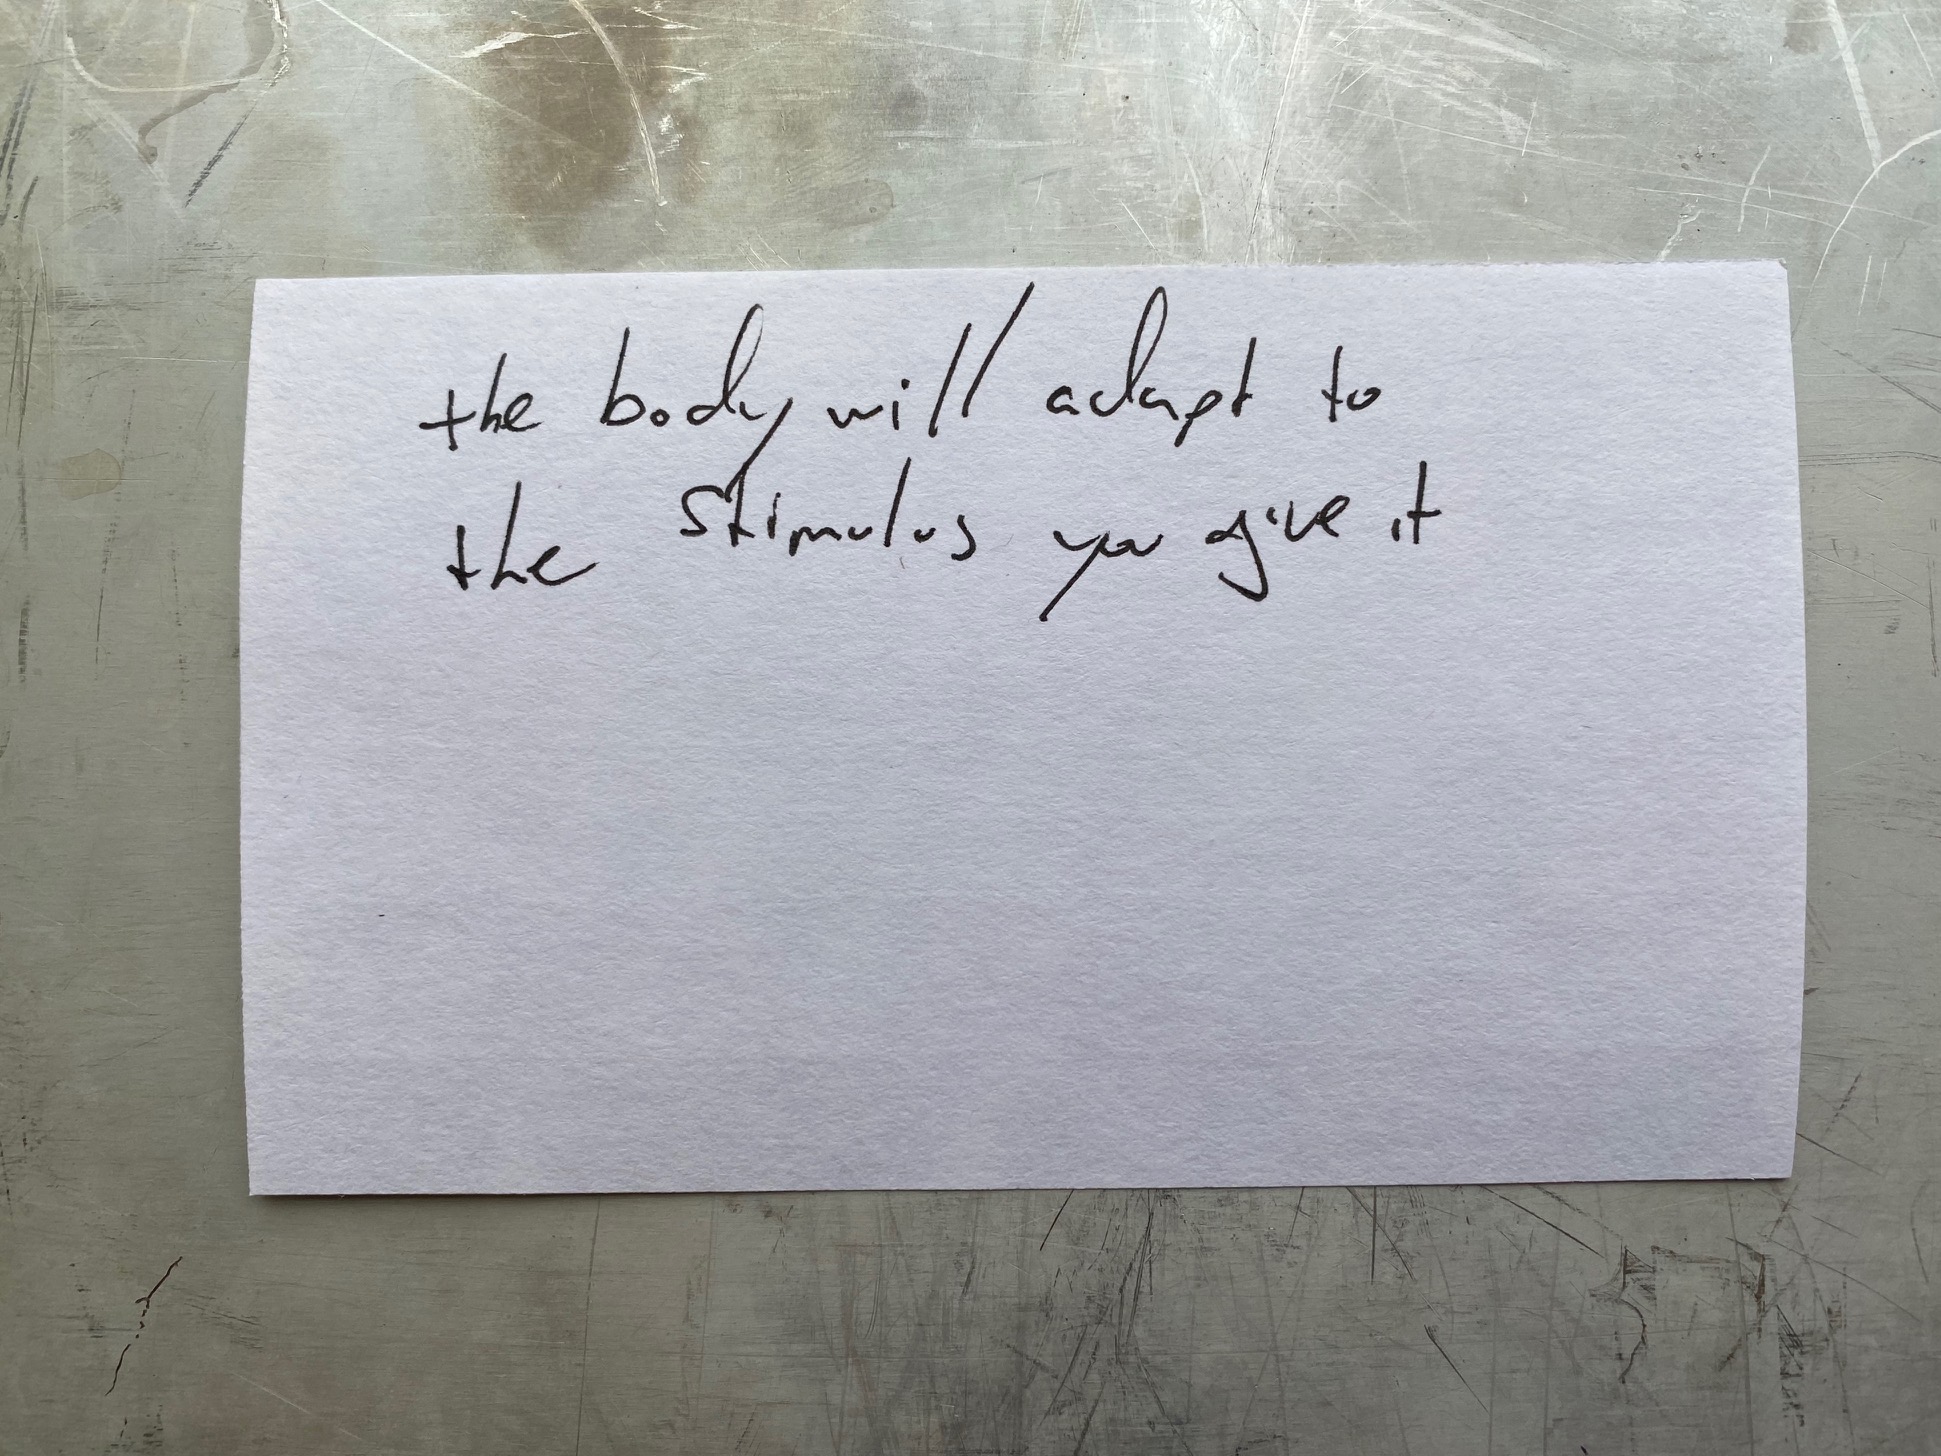 the body will adapt to
the stimulus you give it